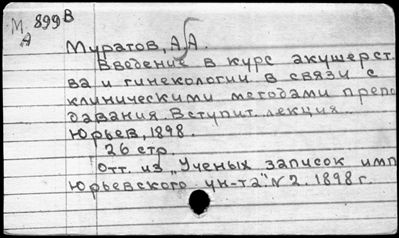 М 899 В
А
Муратов, А.А.
Введение в курс акушерст.
ва и гинекологии в связи с
клиническими методами препо
давания. Вступит. лекция.
Юрьев, 1898.
26 стр.
Отт. из „Ученых записок имп
Юрьевского ун-та". N 2. 1898 г.